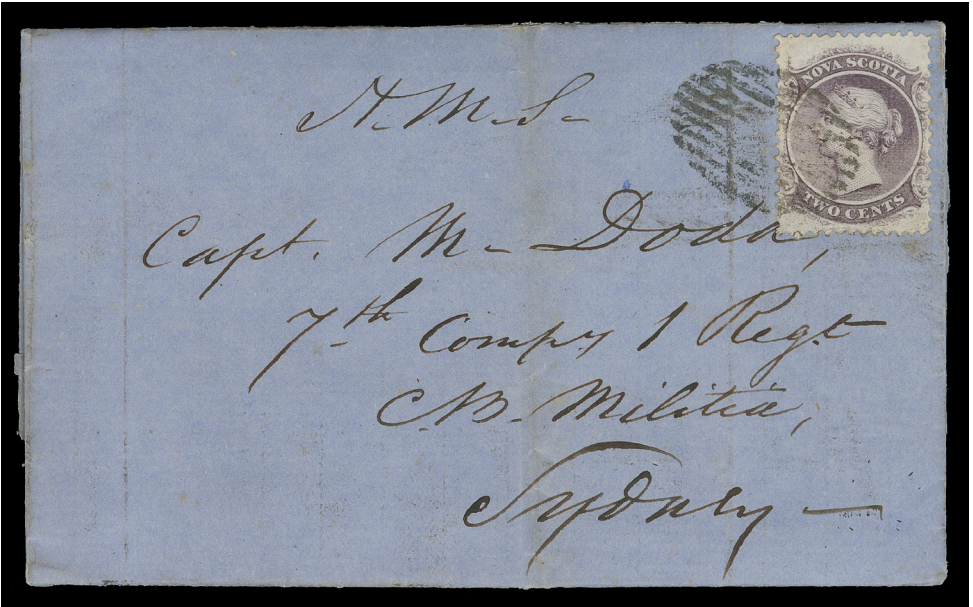 NOVA SCOTIA
TWO CENTS
H. M. S.
Capt. M. Dodd,
7th Compy 1 Regt
C.B. Militia,
Sydney